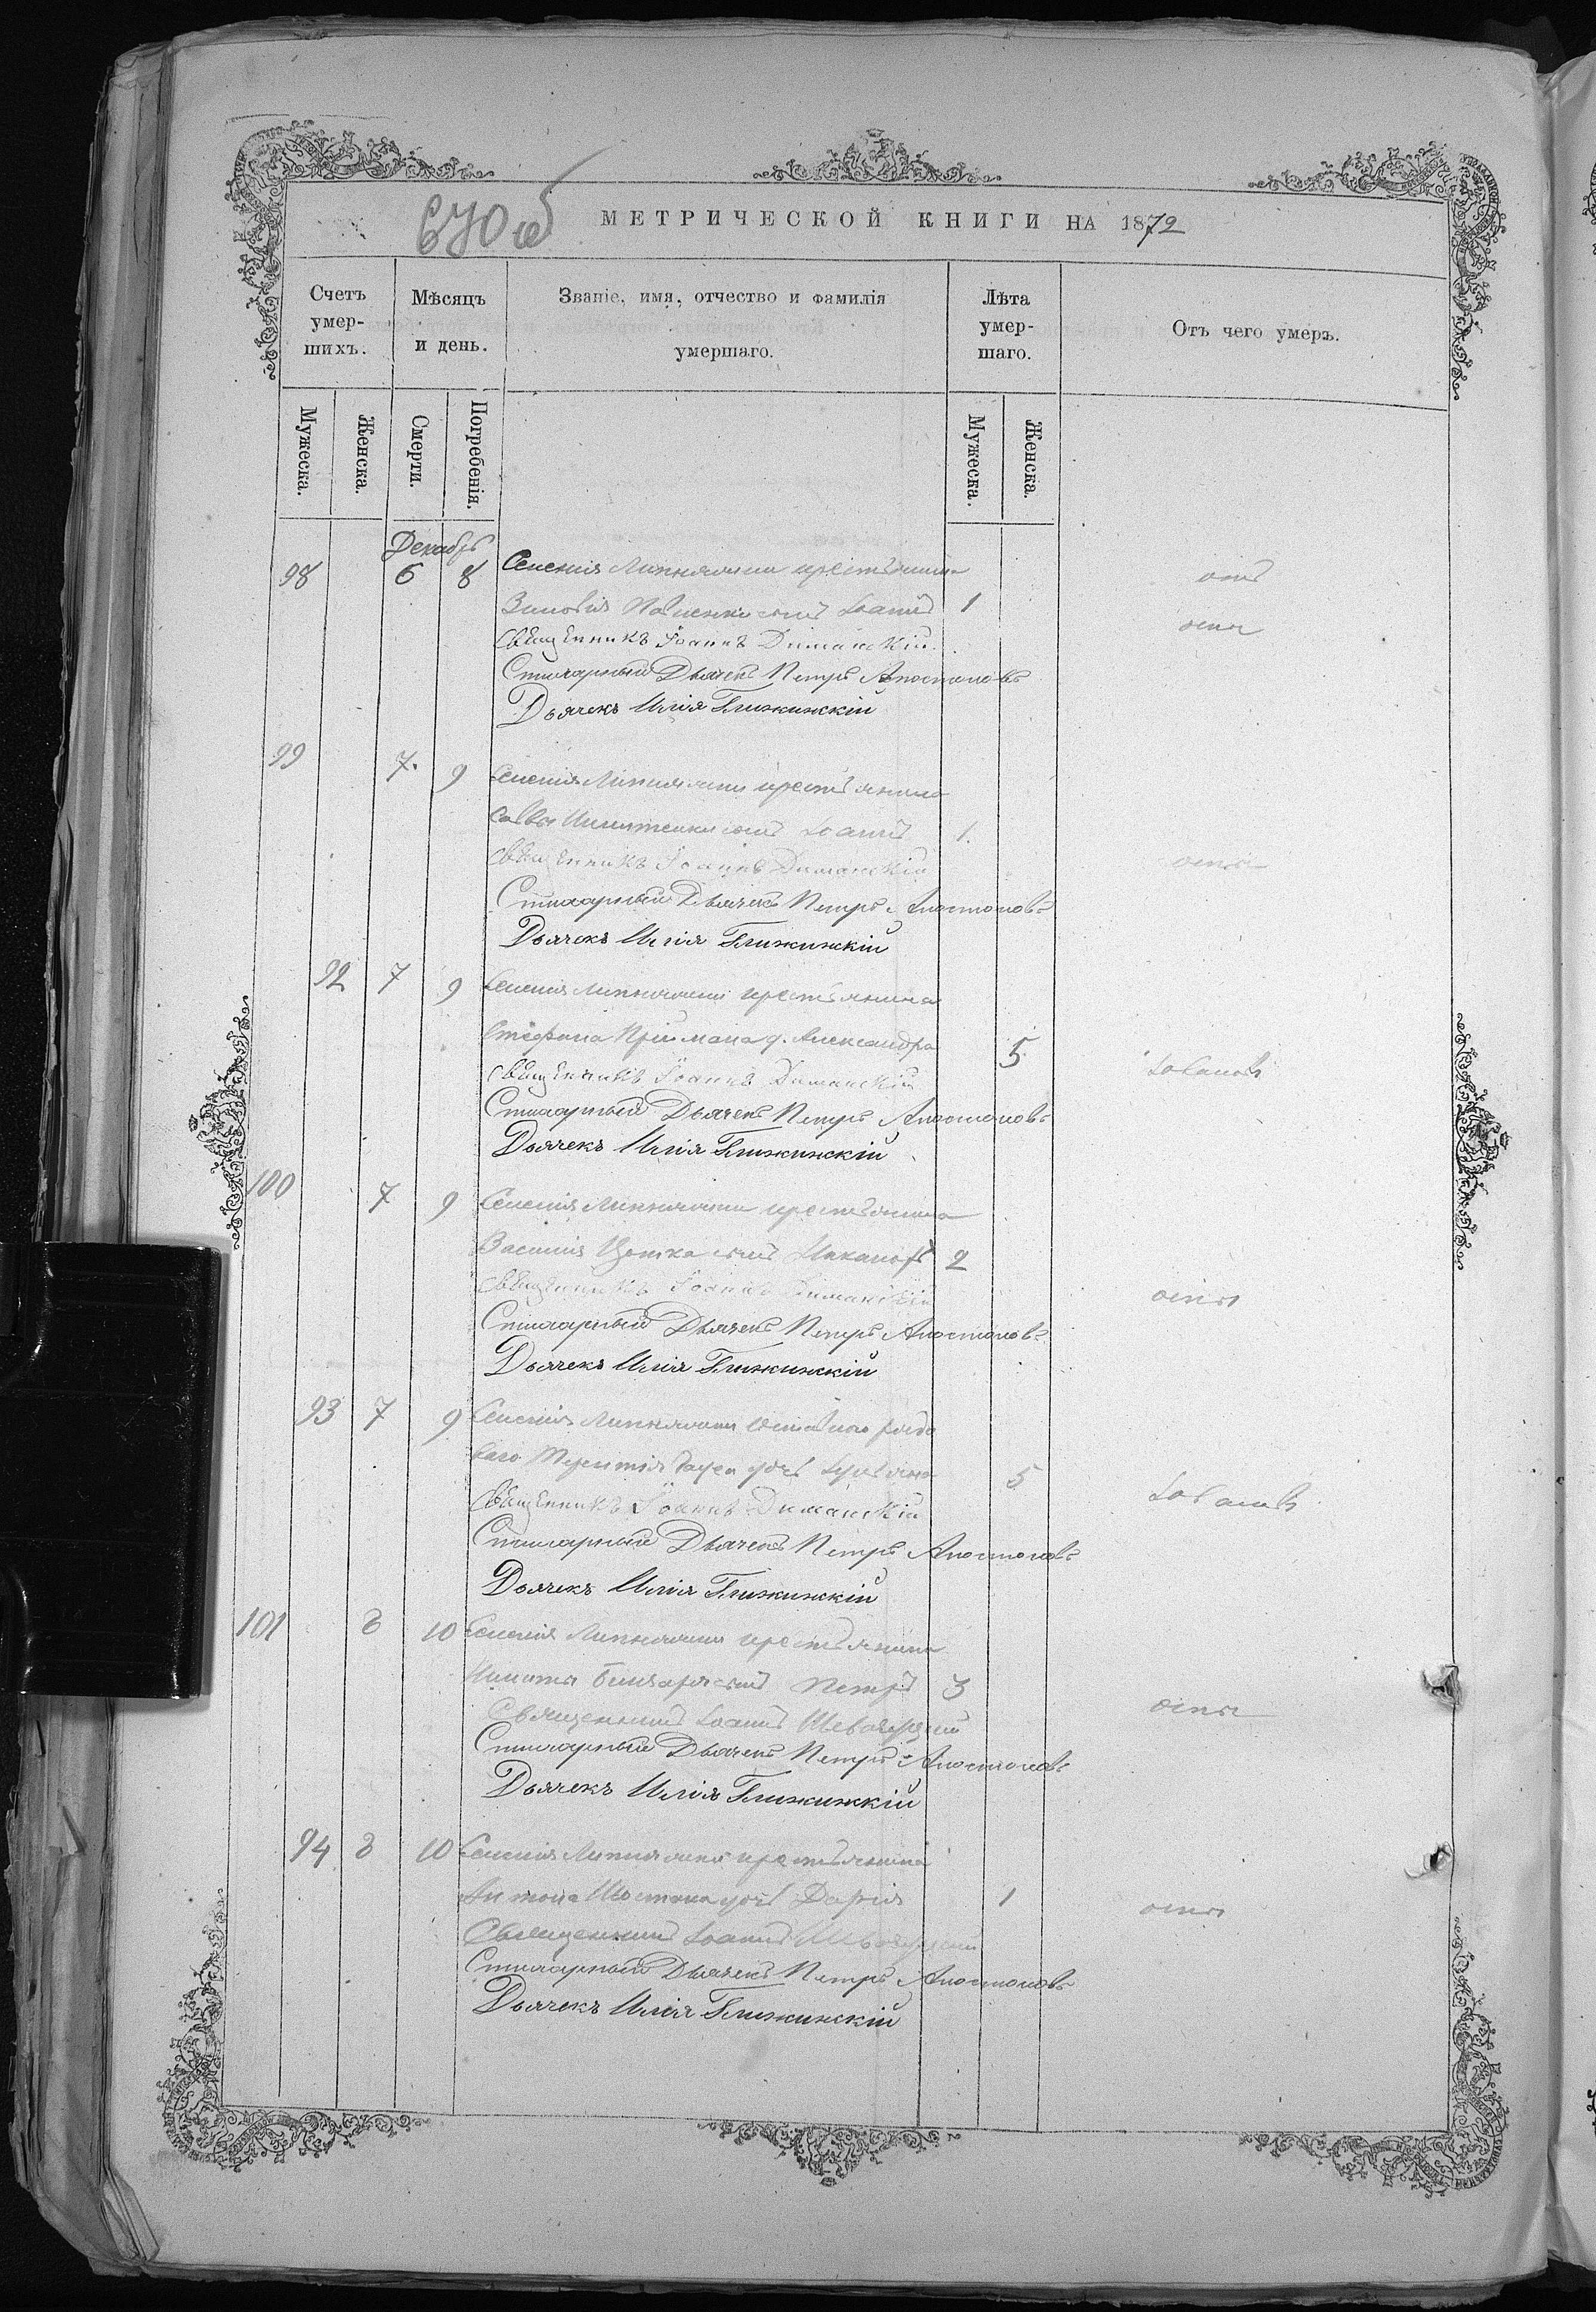 670 об
МЕТРИЧЕСКОЙ КНИГИ НА 1872
Счетъ умер-шихъ.
Мѣсяцъ и день.
Званіе, имя, отчество и фамилія умершаго.
Лѣта умер-шаго.
Отъ чего умеръ.
Мужеска.
Женска.
Смерти.
Погребенія.
Мужеска.
Женска.
Декабрь
98 6 8 Селенія Липнягки крестьянина
Зиновія сынъ Іоаннъ 1 отъ
Священникъ Іоаннъ Диманскій оспы
Стихарный Дьячекъ Петръ Апостоловъ
Дьячекъ Илія Глижинскій
99 7. 9 Селенія Липнягки крестьянина
Саввы сынъ Іоаннъ 1.
Священникъ Іоаннъ Диманскій оспы
Стихарный Дьячекъ Петръ Апостоловъ
Дьячекъ Илія Глижинскій
92 7 9 Селенія Липнягки крестьянина
Стефана Пріймака д. Александра 5
Священникъ Іоаннъ Диманскій
Стихарный Дьячекъ Петръ Апостоловъ
Дьячекъ Илія Глижинскій
100 7 9 Селенія Липнягки крестьянина
Василія сынъ 2
Священникъ Іоаннъ Диманскій оспы
Стихарный Дьячекъ Петръ Апостоловъ
Дьячекъ Илія Глижинскій
93 7 9 Селенія Липнягки рядо
ваго дочь 5
Священникъ Іоаннъ Диманскій
Стихарный Дьячекъ Петръ Апостоловъ
Дьячекъ Илія Глижинскій
101 8 10 Селенія Липнягки крестьянина
Никиты сынъ Петръ 3
Священникъ Іоаннъ оспы
Стихарный Дьячекъ Петръ Апостоловъ
Дьячекъ Илія Глижинскій
94 8 10 Селенія Липнягки крестьянина
Антона дочь Дарія 1 оспы
Священникъ Іоаннъ
Стихарный Дьячекъ Петръ Апостоловъ
Дьячекъ Илія Глижинскій